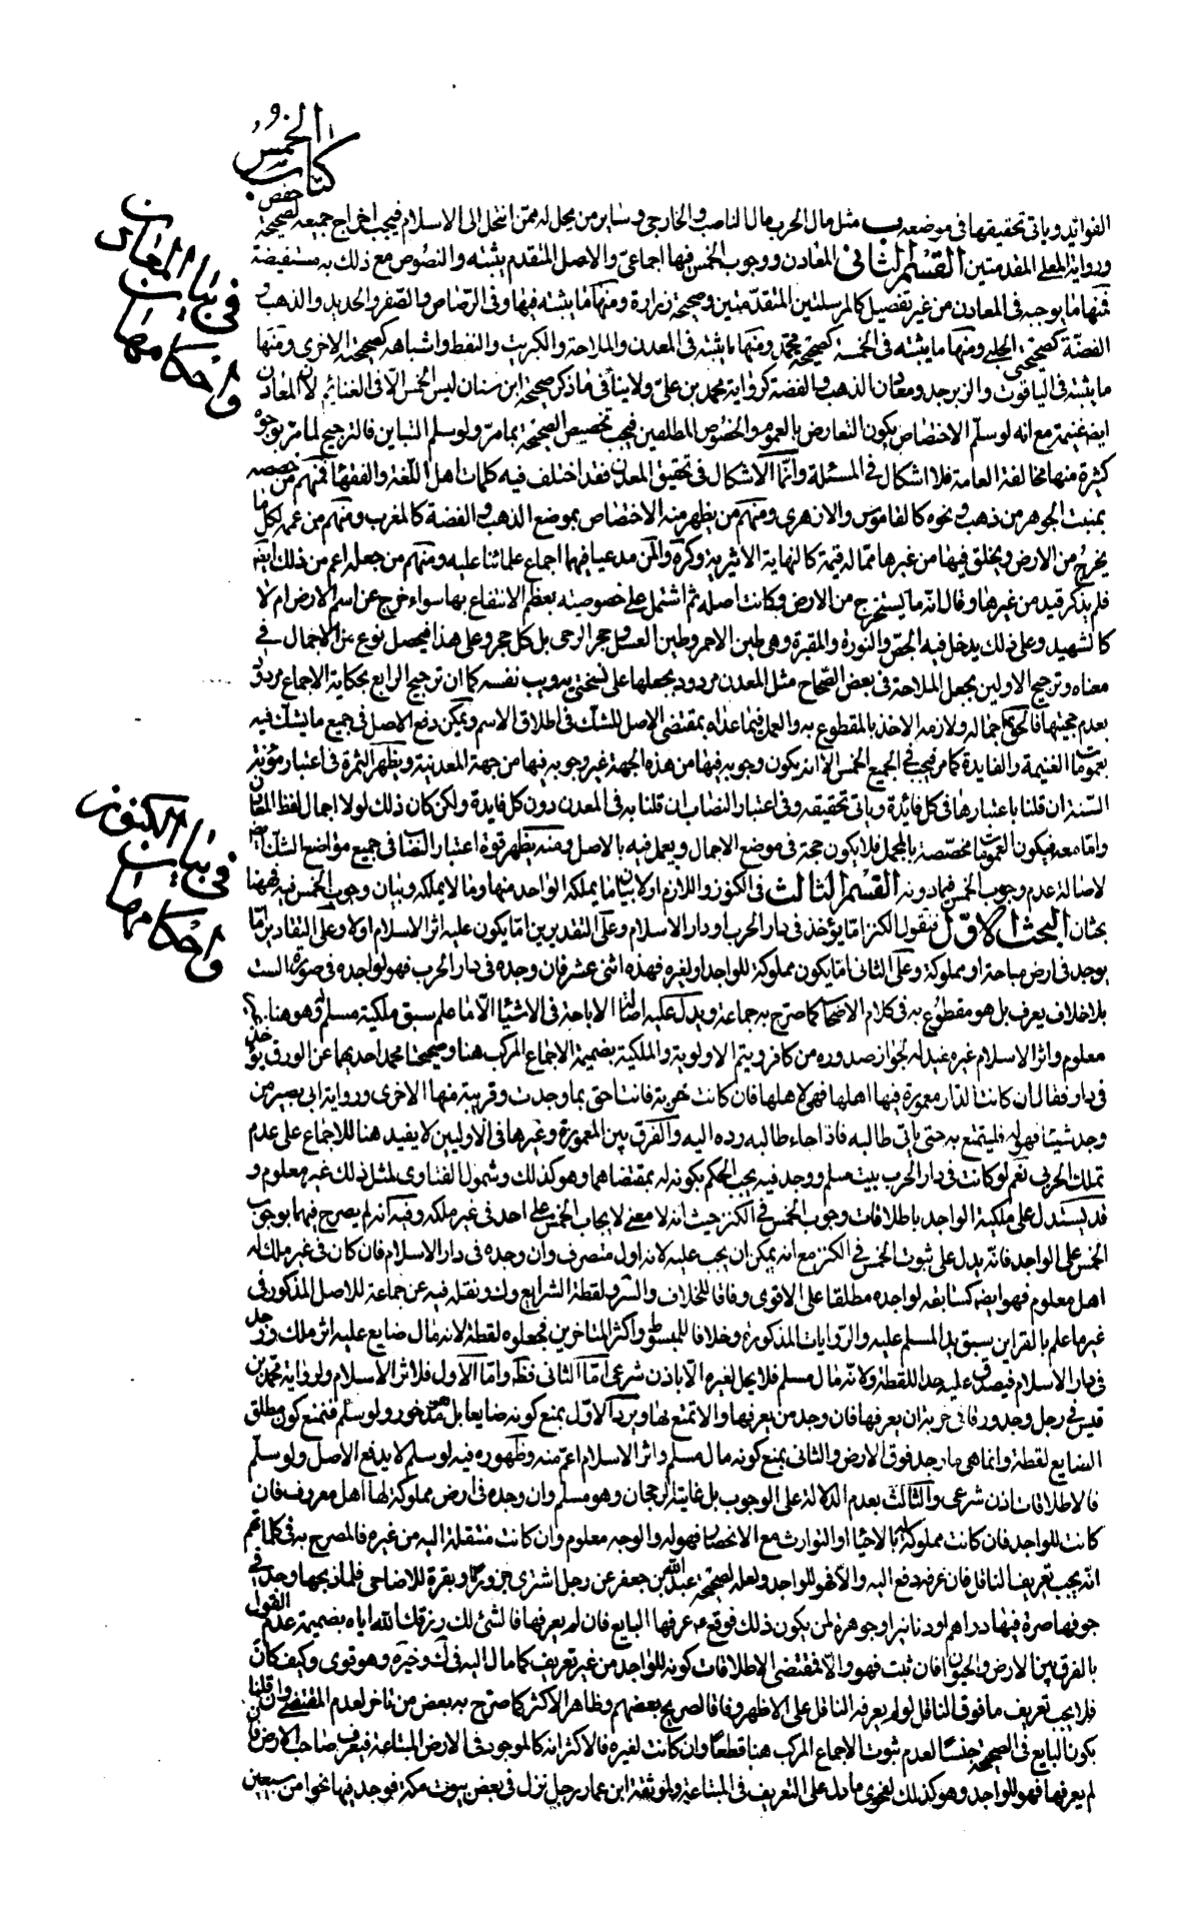 كتاب الخمس
الفوائد وياتى تحقيقها فى موضعه ب مثل مال الحرب مال الناصب والخارجى وساير من محل له ممن انتحل الى الاسلام فيجب اخراج جميعه لصحيحة حفص
ورواية المعلى المقدمتين القسم الثانى المعادن ووجوب الخمس فيها اجماعى والاصل المتقدم يثبته والنصوص مع ذلك به مستفيضة
فمنها ما يوجبه فى المعادن من غير تفصيل كالمرسلتين المتقدمتين وصحيحة زرارة ومنها ما يثبته فيها وفى الرصاص والصفر والحديد والذهب و
الفضة كصحيحتى الحلبى ومنها ما يثبته فى الخمسة كصحيحة محمد ومنها ما يثبته فى المعدن والملاحة والكبريت والنفط واشباهه كصحيحته الاخرى ومنها
ما يثبته فى الياقوت والزبرجد ومعادن الذهب والفضة كرواية محمد بن على ولا ينافى ما ذكر صحيحة ابن سنان ليس الخمس الا فى الغنائم لان المعادن
ايضا غنيمة مع انه لو سلم الاختصاص يكون التعارض بالعموم والخصوص المطلقين فيجب تخصيص الصحيحة بما مر ولو سلم التباين فالترجيح لما مر بوجوه
كثيرة منها مخالفة العامة فلا اشكال فى المسئلة وانما الاشكال فى تحقيق المعدن فقد اختلف فيه كلمات اهل اللغة والفقهاء فمنهم من خصصه
بمنبت الجوهر من ذهب ونحوه كالقاموس والازهرى ومنهم من يظهر منه الاختصاص بموضع الذهب والفضة كالمغرب ومنهم من عمه لكل ما
يخرج من الارض ويخلق فيها من غيرها مما له قيمة كالنهاية الاثيرية وكرة والمن مدعيا فيهما اجماع علمائنا عليه ومنهم من جعله اعم من ذلك ايضا
فلم يذكر قيد من غيرها وقال انه ما يستخرج من الارض وكانت اصله ثم اشتمل على خصوصية يعظم الانتفاع بها سواء خرج عن اسم الارض ام لا
كالشهيد وعلى ذلك يدخل فيه الجص والنورة والمقرة وهى طين الاحمر وطين الغسل وحجر الرحى بل كل حجر وعلى هذا فيحصل نوع من الاجمال فى
معناه وترجيح الاولين بجعل الملاحة فى بعض الصحاح مثل المعدن مردود بجعلها على نسختى يه ويب نفسه كما ان ترجيح الرابع بحكاية الاجماع مردود
بعدم حجيتها فالحق اجماله ولازمه الاخذ بالمقطوع به والعمل فيما عداه بمقتضى الاصل للشك فى اطلاق الاسم ويمكن دفع الاصل فى جميع ما يشك فيه
بعمومات الغنيمة والفايدة كما مر فيجب فى الجميع الخمس الا انه يكون وجوبه فيها من هذه الجهة غير وجوبه فيها من جهة المعدنية ويظهر الثمرة فى اعتبار مؤنة
السنة ان قلنا باعتبارها فى كل فائدة وياتى تحقيقه وفى اعتبار النصاب ان قلنا به فى المعدن دون كل فايدة ولكن كان ذلك لولا اجمال لفظ المعادن
واما معه فيكون العمومات مخصصة بالمجمل فلا يكون حجة فى موضع الاجمال ويعمل فيه بالاصل ومنه يظهر قوة اعتبار النصاب فى جميع مواضع الشك ايضا
لاصالة عدم وجوب الخمس فيما دونه القسم الثالث فى الكنوز واللازم اولا بيان ما يملكه الواجد منها وما لا يملكه وبيان وجوب الخمس فيه فههنا
بحثان البحث الاول فنقول الكنز اما يؤخذ فى دار الحرب او دار الاسلام وعلى التقديرين اما يكون عليه اثر الاسلام اولا وعلى التقادير اما
يوجد فى ارض مباحة او مملوكة وعلى الثانى اما يكون مملوكة للواجد او لغيره فهذه اثنى عشر فان وجده فى دار الحرب فهو لواجده فى صوره الست
بلا خلاف يعرف بل هو مقطوع به فى كلام الاصحاب كما صرح به جماعة ويدل عليه اصالة الاباحة فى الاشياء الا ما علم سبق ملكية مسلم له وهو هنا غير
معلوم واثر الاسلام غير مفيد له لجواز صدوره من كافر ويتم الاولوية والملكية بضميمة الاجماع المركب هنا وصحيحتا محمد احديهما عن الورق يوجد
فى دار فقال ان كانت الدار معمورة فيها اهلها فهى لاهلها فان كانت خربة فانت احق بما وجدت وقريبة منها الاخرى ورواية ابى بصير من
وجد شيئا فهو له فليتمتع به حتى ياتى طالبه فاذا جاء طالبه رده اليه والفرق بين المعمورة وغيرها فى الاوليين لا يفيد هنا للاجماع على عدم
تملك الحربى نعم لو كانت فى دار الحرب بيت مسلم ووجد فيه يجب الحكم بكونه له بمقتضاهما وهو كذلك وشمول الفتاوى لمثل ذلك غير معلوم و
قد يستدل على ملكية الواجد باطلاقات وجوب الخمس فى الكنز حيث انه لا معنى لايجاب الخمس على احد فى غير ملكه وفيه انه لم يصرح فيها بوجوب
الخمس على الواجد فانه يدل على ثبوت الخمس فى الكنز مع انه يمكن ان يجب عليه لانه اول متصرف وان وجده فى دار الاسلام فان كان فى غير ملك له
اهل معلوم فهو ايضا كسابقه لواجده مطلقا على الاقوى وفاقا للخلاف والسرائر ولقطة الشرايع وك ونقله فيه عن جماعة للاصل المذكور فى
غير ما علم بالقراين سبق يد المسلم عليه والروايات المذكورة وخلافا للمبسوط واكثر المتاخرين فجعلوه لقطة لانه مال ضايع عليه اثر ملك وجد
فى دار الاسلام فيصدق عليه حد اللقطة ولانه مال مسلم فلا يحل لغيره الا باذن شرعى اما الثانى فظ واما الاول فلاثر الاسلام ولرواية محمد بن
قيس فى رجل وجد ورقا فى خربة ان يعرفها فان وجد من يعرفها والا تمتع بها ويرد الاول بمنع كونه ضايعا بل هو مذخور ولو سلم فنمنع كون مطلق
الضايع لقطة وانما هى ما وجد فوق الارض والثانى بمنع كونه مال مسلم واثر الاسلام اعم منه وظهوره فيه لو سلم لا يدفع الاصل ولو سلم
فالاطلاقات اذن شرعى والثالث بعدم الدلالة على الوجوب بل غايته الرجحان وهو مسلم وان وجده فى ارض مملوكة لها اهل معروف فان
كانت للواجد فان كانت مملوكة له بالاحياء او التوارث مع الانحصار فهو له والوجه معلوم وان كانت منتقلة اليه من غيره فالمصرح به فى كلماتهم
انه يجب تعريف الناقل فان عرفه دفع اليه والا فهو للواجد ولعله لصحيحة عبد الله بن جعفر عن رجل اشترى جزورا او بقرة للاضاحى فلما ذبحها وجد فى
جوفها صرة فيها دراهم او دنانير او جوهرة لمن يكون ذلك فوقع ع عرفها البايع فان لم يعرفها فالشئ لك رزقك الله اياه بضميمة عدم القول
بالفرق بين الارض والحيوان فان ثبت فهو والا فمقتضى الاطلاقات كونه للواجد من غير تعريف كما مال اليه فى ك وخيره وهو قوى وكيف كان
فلا يجب تعريف ما فوق الناقل لو لم يعرفه الناقل على الاظهر وفاقا لصريح بعضهم وظاهر الاكثر كما صرح به بعض من تاخر لعدم المقتضى وان قلنا
بكون البايع فى الصحيحة جنسا لعدم ثبوت الاجماع المركب هنا قطعا وان كانت لغيره فالاكثر انه كالموجود فى الارض المبتاعة فيعرف صاحب الارض فان
لم يعرفها فهو للواجد وهو كذلك لفحوى ما دل على التعريف فى المبتاعة ولموثقة ابن عمار رجل نزل فى بعض بيوت مكة فوجد فيها نحوا من سبعين
فى بيان المعادن
واحكامها
فى بيان الكنوز
واحكامها